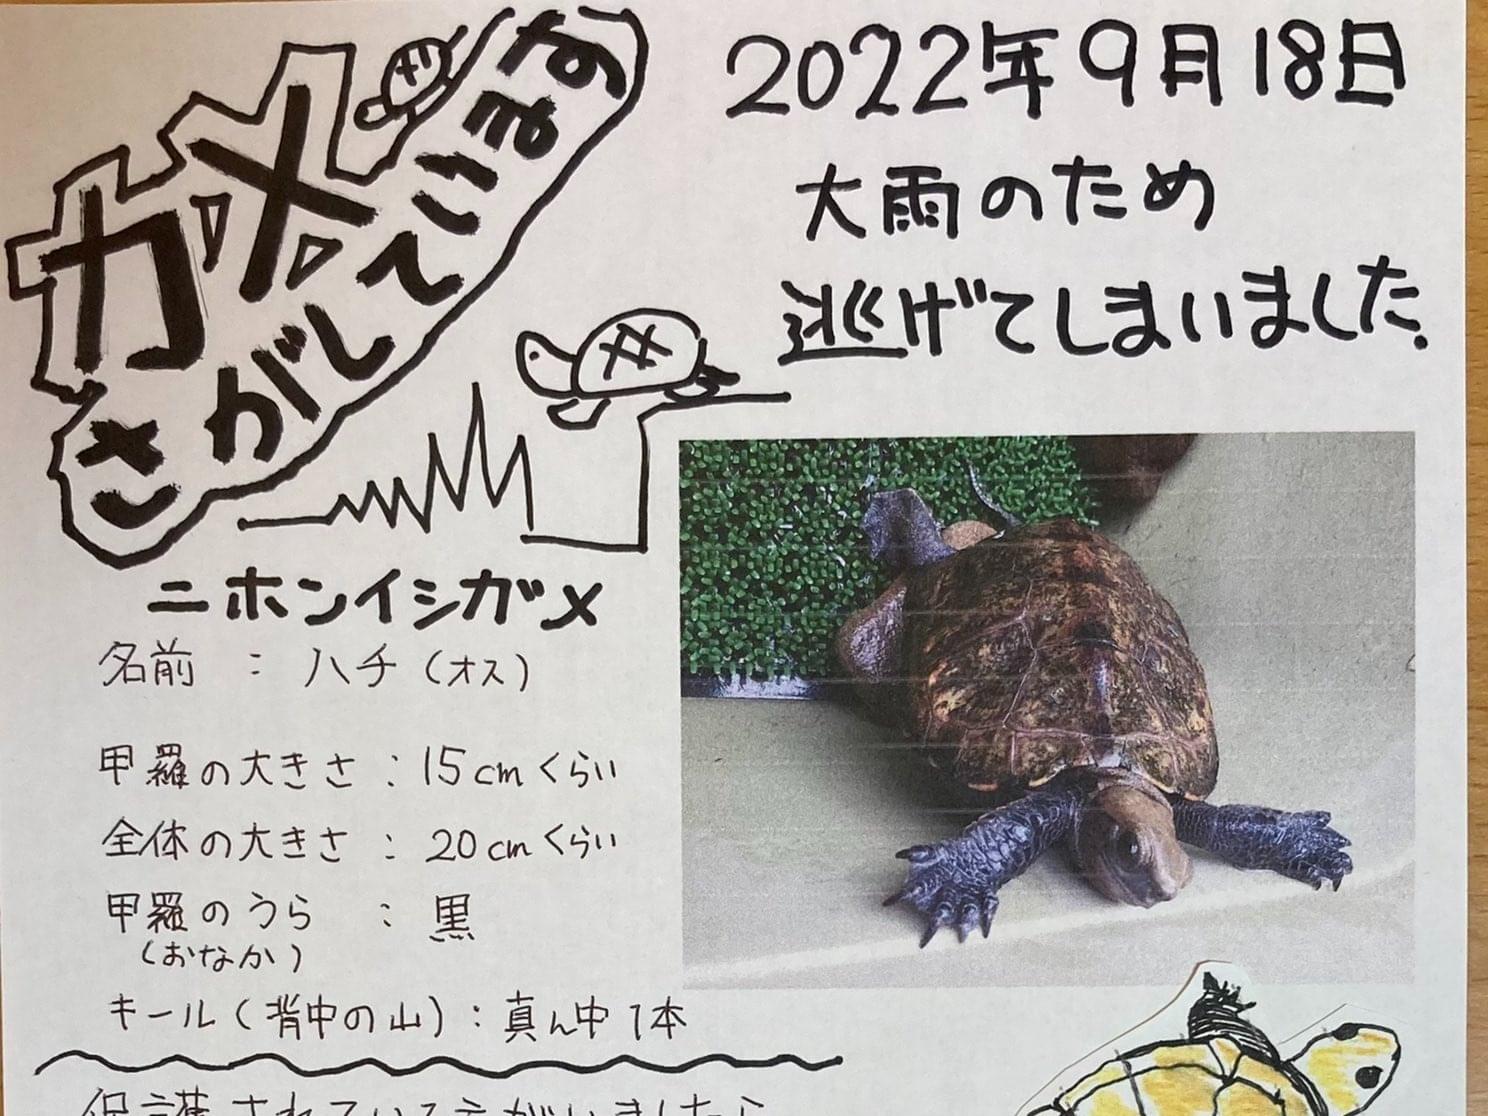 カメ
さがしてます
2022年9月18日
大雨のため
逃げてしまいました.
ニホンイシガメ
名前 : ハチ (オス)
甲羅の大きさ : 15cmくらい
全体の大きさ : 20cmくらい
甲羅のうら : 黒
(おなか)
キール(背中の山) : 真ん中1本
保護されている方がいましたら